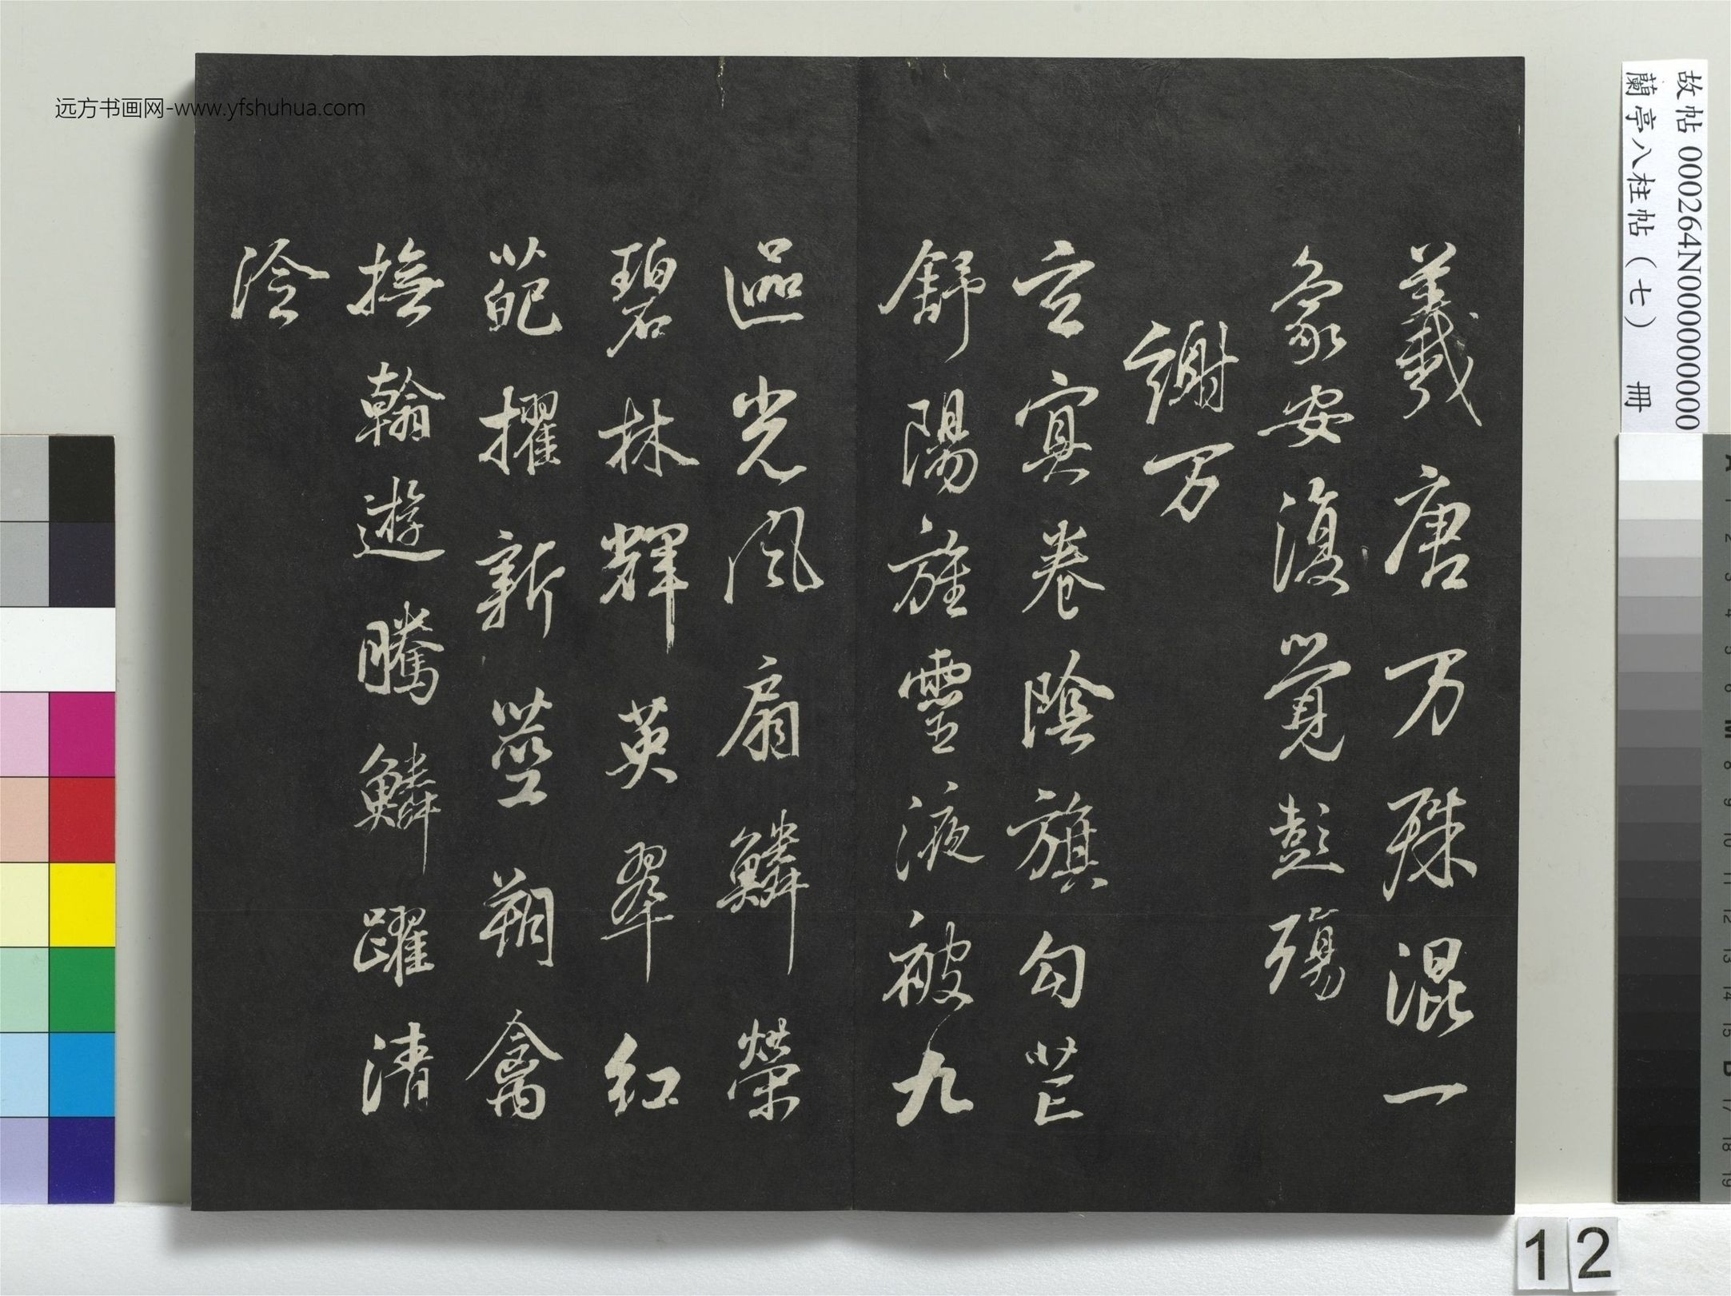 远方书画网-www.yfshuhua.com
羲唐万殊混一
象安復覺彭殤
謝万
玄冥卷陰旗勾芒
舒陽旌靈液被九
區光風扇鱗榮
碧林輝英翠紅
葩擢新莖翔禽
撫翰遊騰鱗躍清
泠
故帖 000264N000000000
蘭亭八柱帖（七） 冊
12